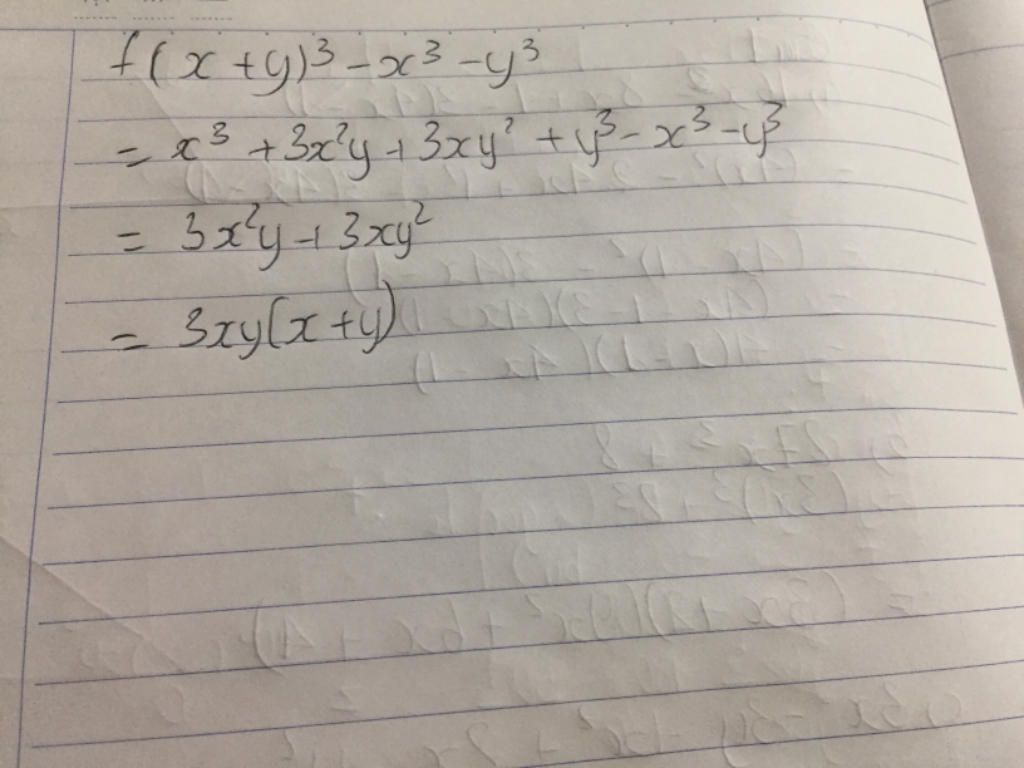 f (x + y)³ - x³ - y³
= x³ + 3x²y + 3xy² + y³ - x³ - y³
= 3x²y + 3xy²
= 3xy(x + y)